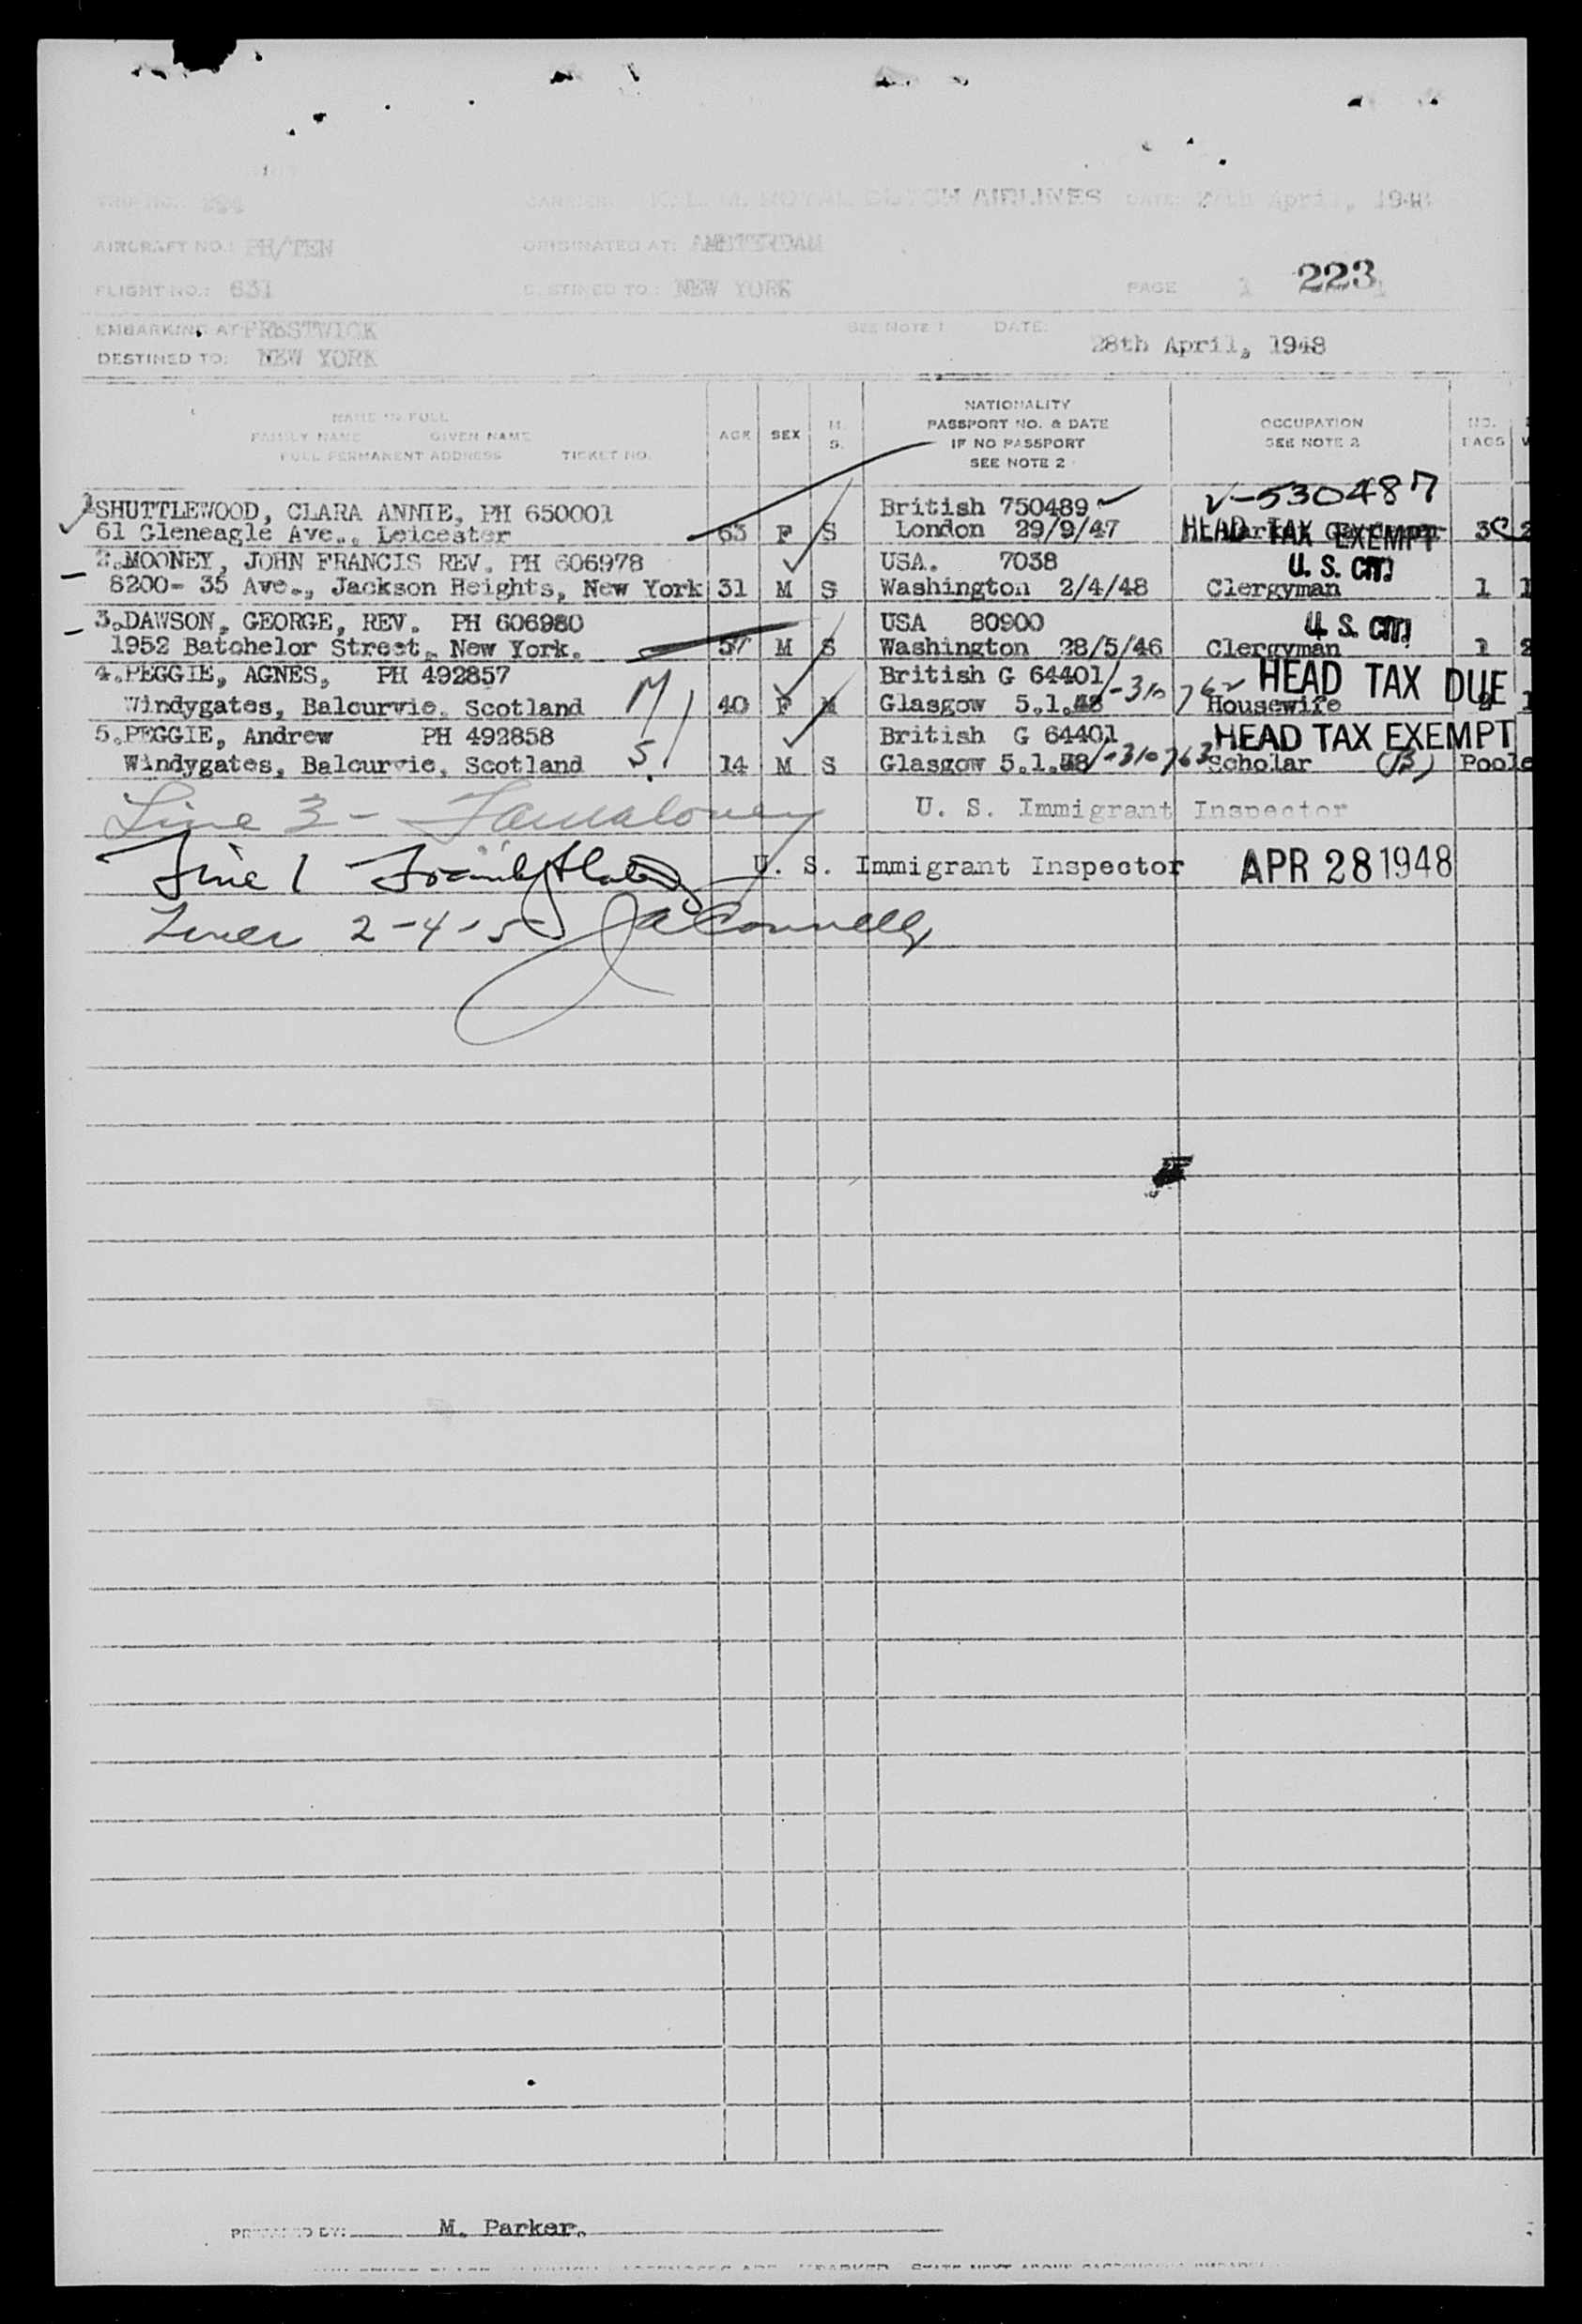 TRIP NO. 294 CARRIER: K.L.M. ROYAL DUTCH AIRLINES DATE: April, 1948
AIRCRAFT NO.: PH/TEN ORIGINATED AT: AMSTERDAM
FLIGHT NO.: 631 DESTINED TO: NEW YORK PAGE 1 223 1
EMBARKING AT PRESTWICK SEE NOTE 1 DATE:
DESTINED TO: NEW YORK 28th April, 1948
NAME IN FULL
FAMILY NAME GIVEN NAME
FULL PERMANENT ADDRESS TICKET NO.
AGE SEX M. S.
NATIONALITY
PASSPORT NO. & DATE
IF NO PASSPORT
SEE NOTE 2
OCCUPATION
SEE NOTE 2
NO.
BAGS
V-530487
1 SHUTTLEWOOD, CLARA ANNIE, PH 650001 British 750489
61 Gleneagle Ave., Leicester 63 F S London 29/9/47 HEAD TAX EXEMPT 3C 2
2.MOONEY, JOHN FRANCIS REV. PH 606978 USA. 7038 U. S. CIT.
8200- 35 Ave., Jackson Heights, New York 31 M S Washington 2/4/48 Clergyman 1 1
3.DAWSON, GEORGE, REV. PH 606980 USA 80900 U. S. CIT.
1952 Batchelor Street, New York. 57 M S Washington 28/5/46 Clergyman 1 2
4.PEGGIE, AGNES, PH 492857 British G 64401 HEAD TAX DUE
Windygates, Balcurvie, Scotland M 40 F M Glasgow 5.1.48 -310762 Housewife 2 1
5.PEGGIE, Andrew PH 492858 British G 64401 HEAD TAX EXEMPT
Windygates, Balcurvie, Scotland S. 14 M S Glasgow 5.1.48 -310763 Scholar (B) Poole
Line 3 - U. S. Immigrant Inspector
Line 1 U. S. Immigrant Inspector APR 28 1948
Lines 2-4-5 JA Connelly
PREPARED BY: M. Parker.